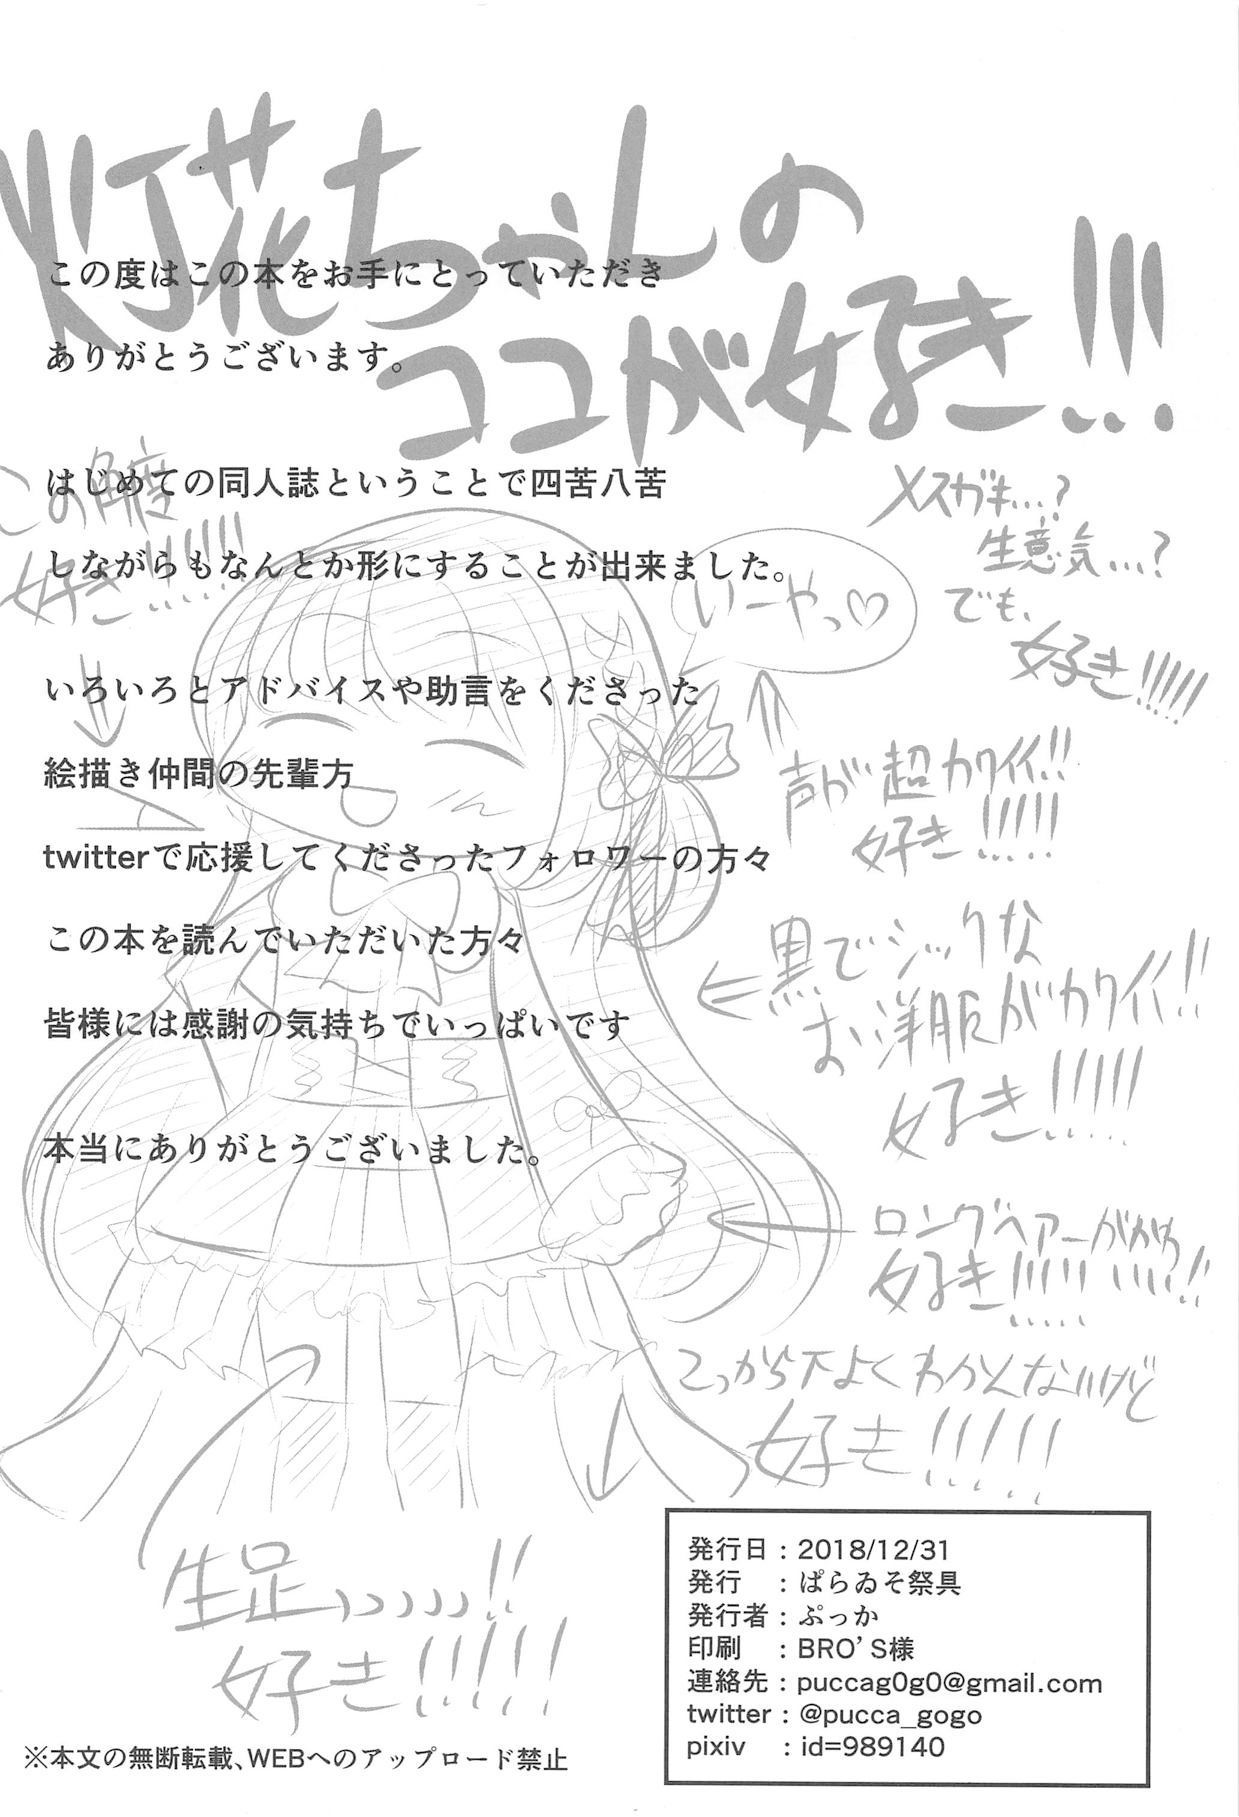 灯花ちゃんの
ココが好き!!!
この度はこの本をお手にとっていただき
ありがとうございます。
はじめての同人誌ということで四苦八苦
しながらもなんとか形にすることが出来ました。
いろいろとアドバイスや助言をくださった
絵描き仲間の先輩方
twitterで応援してくださったフォロワーの方々
この本を読んでいただいた方々
皆様には感謝の気持ちでいっぱいです
本当にありがとうございました。
この角度
好き!!!!!
いーやっ♡
メスガキ...?
生意気...?
でも、
好き!!!!!
声が超カワイイ!!
好き!!!!!
黒でシックな
お洋服がカワイイ!!
好き!!!!!
ロングヘアーが
好き!!!!!
こっから下よくわかんないけど
好き!!!!!
生足
好き!!!!!
発行日:2018/12/31
発行 :ぱらゐそ祭具
発行者:ぷっか
印刷 :BRO'S様
連絡先:puccag0g0@gmail.com
twitter:@pucca_gogo
pixiv :id=989140
※本文の無断転載、WEBへのアップロード禁止